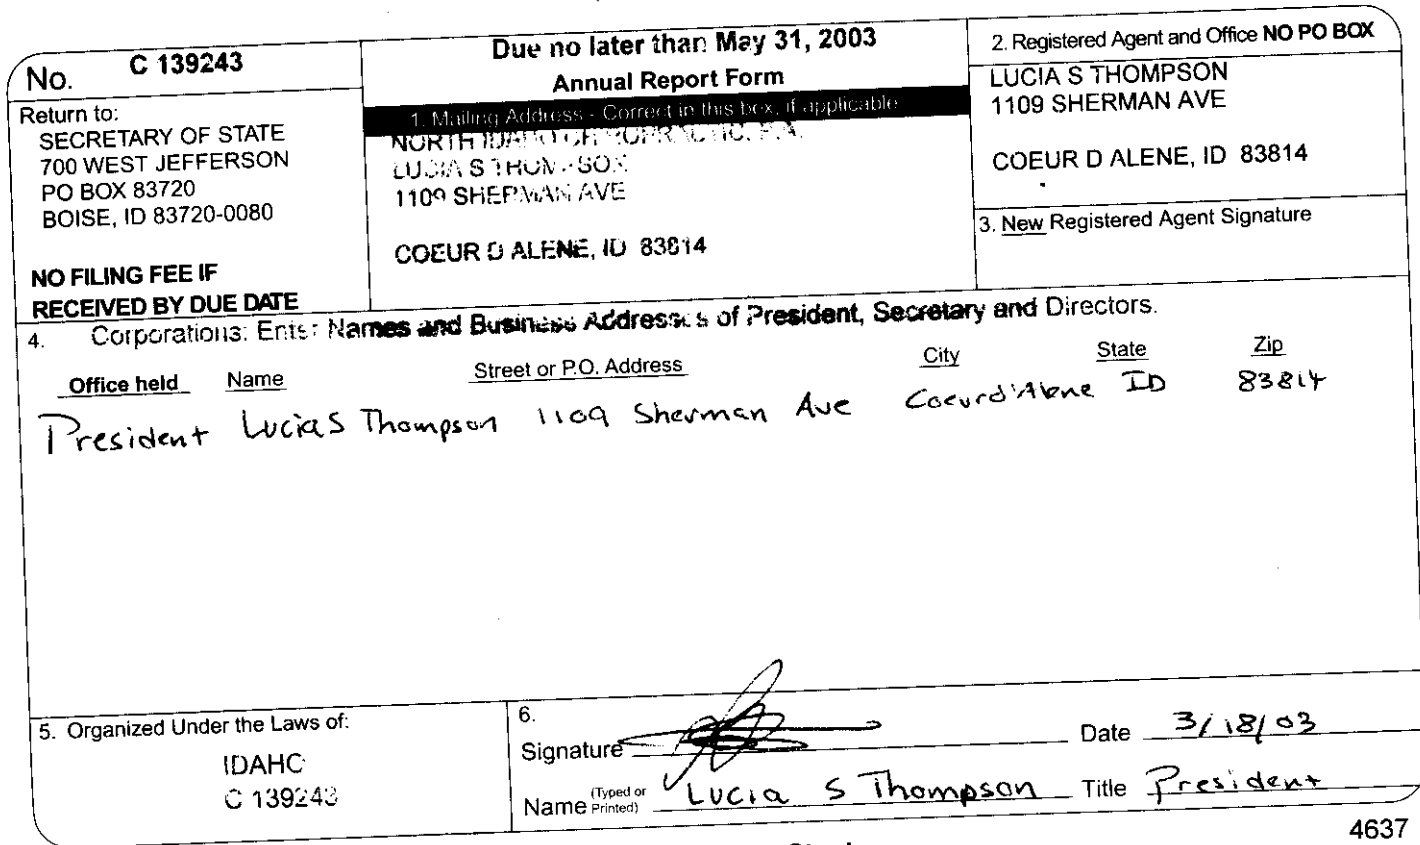 No. C 139243
Return to:
SECRETARY OF STATE
700 WEST JEFFERSON
PO BOX 83720
BOISE, ID 83720-0080
NO FILING FEE IF
RECEIVED BY DUE DATE
Due no later than May 31, 2003
Annual Report Form
1. Mailing Address - Correct in this box, if applicable
NORTH IDAHO CHIROPRACTIC, P.A.
LUCIA S THOMPSON
1109 SHERMAN AVE
COEUR D ALENE, ID 83814
2. Registered Agent and Office NO PO BOX
LUCIA S THOMPSON
1109 SHERMAN AVE
COEUR D ALENE, ID 83814
3. New Registered Agent Signature
4. Corporations: Enter Names and Business Addresses of President, Secretary and Directors.
Office held Name Street or P.O. Address City State Zip
President Lucia S Thompson 1109 Sherman Ave Coeur d'Alene ID 83814
5. Organized Under the Laws of:
IDAHO
C 139243
6.
Signature Date 3/18/03
Name (Typed or Printed) Lucia S Thompson Title President
4637